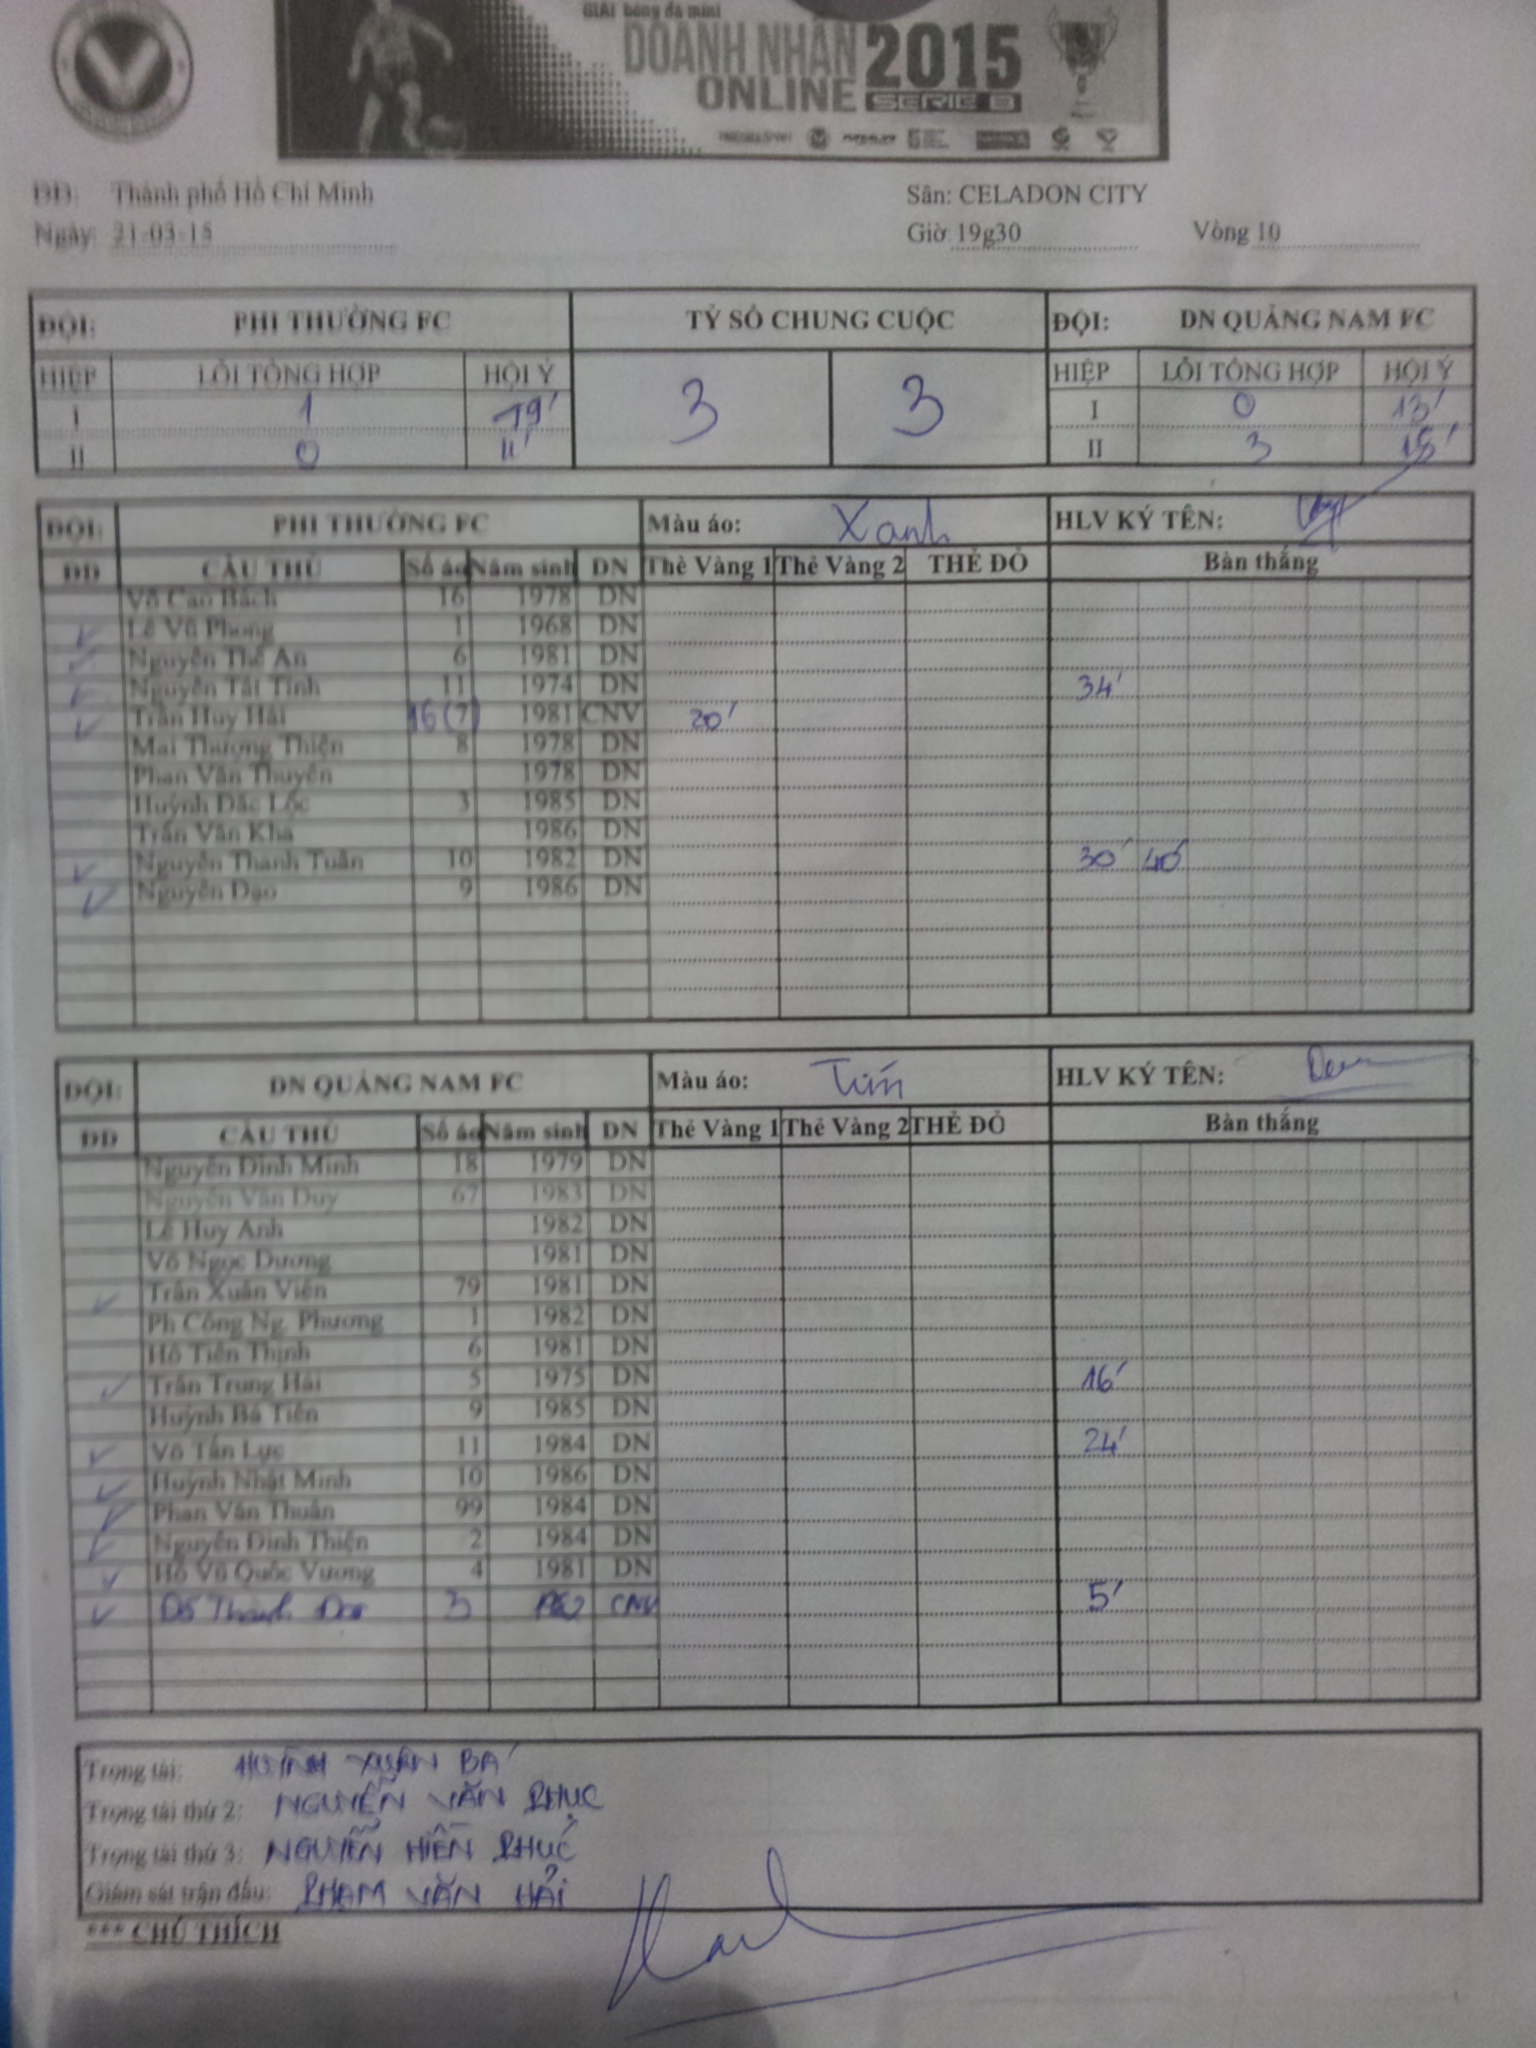 GIẢI bóng đá mini
DOANH NHÂN 2015
ONLINE SERIE B
ĐĐ: Thành phố Hồ Chí Minh Sân: CELADON CITY
Ngày: 21-03-15 Giờ 19g30 Vòng 10
ĐỘI: PHI THƯỜNG FC TỶ SỐ CHUNG CUỘC ĐỘI: DN QUẢNG NAM FC
HIỆP LỖI TỔNG HỢP HỘI Ý 3 3 HIỆP LỖI TỔNG HỢP HỘI Ý
I 1 19' I 0 13'
II 0 11' II 3 15'
ĐỘI: PHI THƯỜNG FC Màu áo: Xanh HLV KÝ TÊN:
ĐD CẦU THỦ Số áo Năm sinh DN Thẻ Vàng 1 Thẻ Vàng 2 THẺ ĐỎ Bàn thắng
Võ Cao Bách 16 1978 DN
Lê Vũ Phong 1 1968 DN
Nguyễn Thế An 6 1981 DN
Nguyễn Tất Tính 11 1974 DN 34'
Trần Huy Hải 16(7) 1981 CNV 20'
Mai Thượng Thiện 8 1978 DN
Phan Văn Thuyên 1978 DN
Huỳnh Đắc Lốc 3 1985 DN
Trần Văn Kha 1986 DN
Nguyễn Thanh Tuấn 10 1982 DN 30' 40'
Nguyễn Đạo 9 1986 DN
ĐỘI: DN QUẢNG NAM FC Màu áo: Tím HLV KÝ TÊN:
ĐD CẦU THỦ Số áo Năm sinh DN Thẻ Vàng 1 Thẻ Vàng 2 THẺ ĐỎ Bàn thắng
Nguyễn Đình Minh 18 1979 DN
Nguyễn Văn Duy 67 1983 DN
Lê Huy Anh 1982 DN
Võ Ngọc Dương 1981 DN
Trần Xuân Viên 79 1981 DN
Ph Công Ng. Phương 1 1982 DN
Hồ Tiến Thịnh 6 1981 DN
Trần Trung Hải 5 1975 DN 16'
Huỳnh Bá Tiên 9 1985 DN
Võ Tấn Lực 11 1984 DN 24'
Huỳnh Nhật Minh 10 1986 DN
Phan Văn Thuần 99 1984 DN
Nguyễn Đình Thiện 2 1984 DN
Hồ Vũ Quốc Vương 4 1981 DN
Đỗ Thành 3 CNV 5'
Trọng tài: HUỲNH XUÂN BÁ
Trọng tài thứ 2: NGUYỄN VĂN PHỤC
Trọng tài thứ 3: NGUYỄN HIỀN PHÚC
Giám sát trận đấu: PHẠM VĂN HẢI
*** CHÚ THÍCH